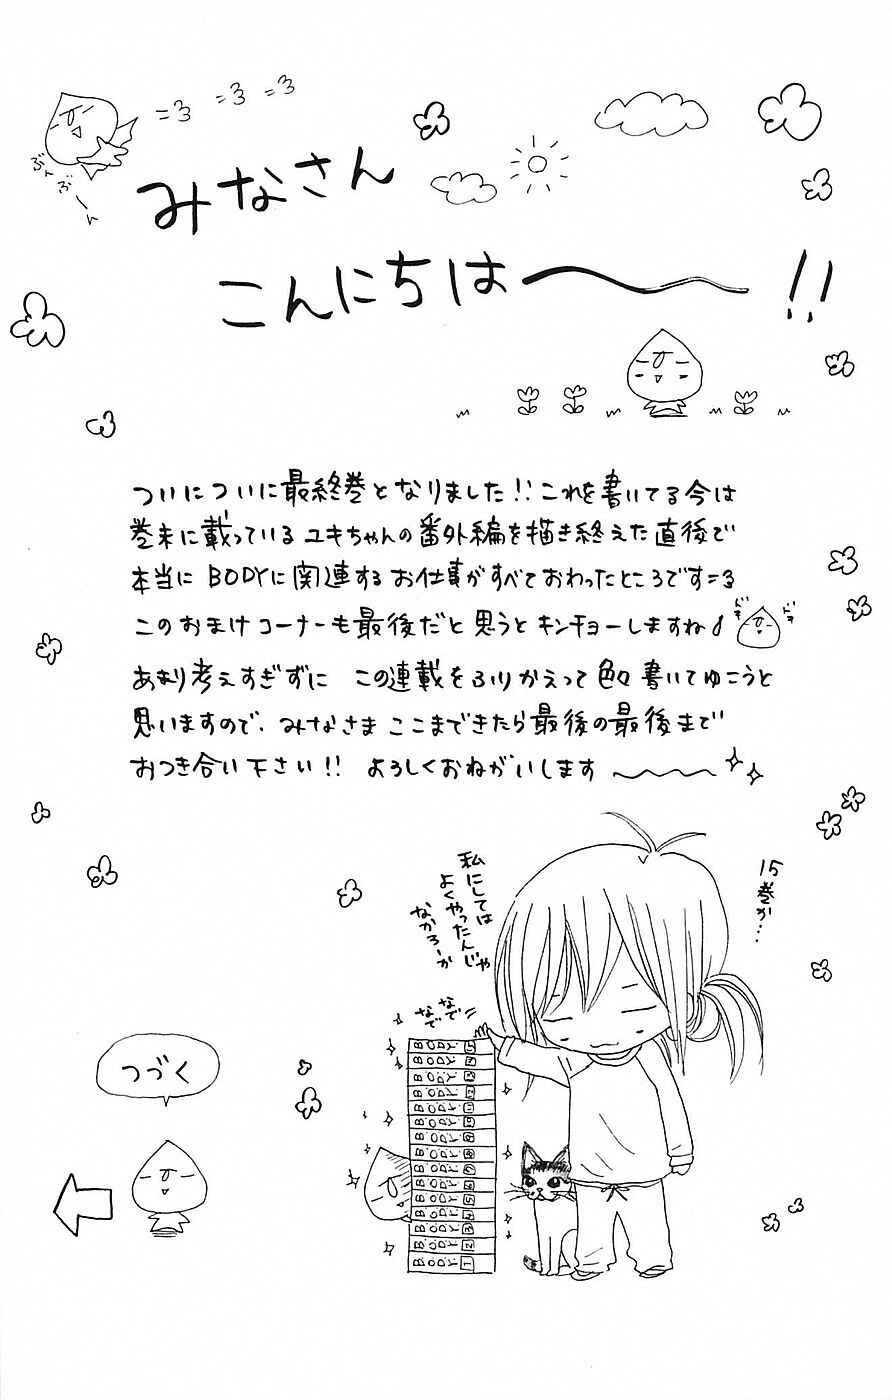 ぶんぶーん
みなさん
こんにちは〜!!
ついについに最終巻となりました!!これを書いてる今は
巻末に載っているユキちゃんの番外編を描き終えた直後で
本当にBODYに関連するお仕事がすべておわったところです=3
このおまけコーナーも最後だと思うとキンチョーしますね♪
ドキ
ドキ
あまり考えすぎずに この連載をふりかえって色々書いてゆこうと
思いますので、みなさまここまできたら最後の最後まで
おつき合い下さい!! よろしくおねがいします〜
15巻か…
私にしては
よくやったんじゃ
なかろーか
なで
なで
B.O.D.Y. 15
B.O.D.Y. 14
B.O.D.Y. 13
B.O.D.Y. 12
B.O.D.Y. 11
B.O.D.Y. 10
B.O.D.Y. 9
B.O.D.Y. 8
B.O.D.Y. 7
B.O.D.Y. 6
B.O.D.Y. 5
B.O.D.Y. 4
B.O.D.Y. 3
B.O.D.Y. 2
B.O.D.Y. 1
つづく